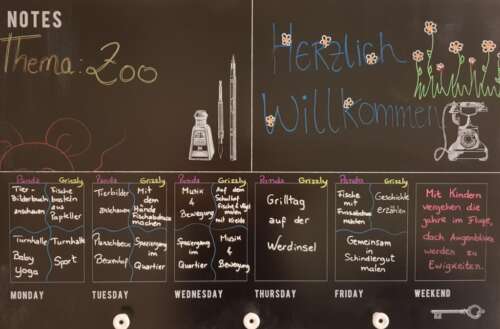 NOTES
Thema: Zoo
Herzlich
Willkommen
Panda Grizzly
Tier-
Bilderbuch
anschauen
Fische
basteln
aus
Papteller
Turnhalle
Baby
Yoga
Turnhalle
Sport
MONDAY
Panda Grizzly
Tierbilder
anschauen
Mit
dem
Hände
Fischabdrücke
machen
Planschbecken
Besenhof
Spaziergang
im
Quartier
TUESDAY
Panda Grizzly
Musik
&
Bewegung
Auf dem
Schulhof
fische & Vögel
malen
mit Kreide
Spaziergang
im
Quartier
Musik
&
Bewegung
WEDNESDAY
Panda Grizzly
Grilltag
auf der
Werdinsel
THURSDAY
Panda Grizzly
Fische
mit
Fussabdruck
malen
Geschichte
Erzählen
Gemeinsam
in
Schindlergut
malen
FRIDAY
Mit Kindern
vergehen die
jahre im Fluge,
doch Augenblicke
werden zu
Ewigkeiten.
WEEKEND